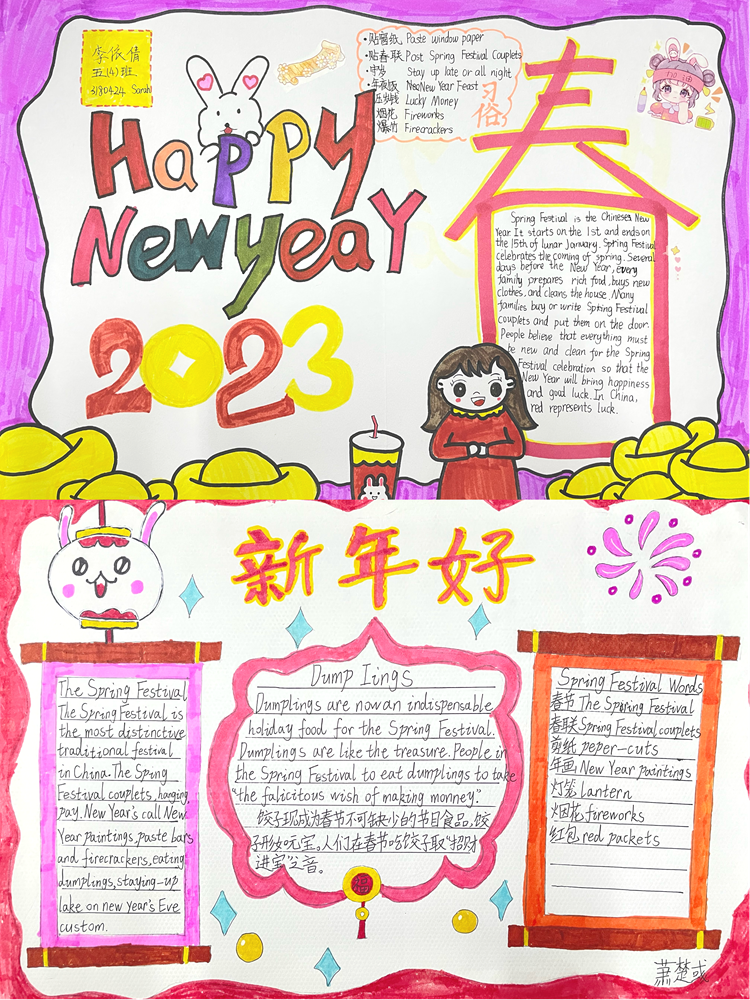 李依倩
五(4)班
3180424 Sarah
HaPPY
NewyeaY
2023
·贴窗纸 Paste window paper
·贴春联 Post Spring Festival Couplets
·守岁 Stay up late or all night
·年夜饭 New Year Feast
压岁钱 Lucky Money
烟花 Fireworks
爆竹 Firecrackers
习俗
春
Spring Festival is the Chinese New
Year. It starts on the 1st and ends on
the 15th of lunar January. Spring Festival
celebrates the coming of spring. Several
days before the New Year, every
family prepares rich food, buys new
clothes, and cleans the house. Many
families buy or write Spring Festival
couplets and put them on the door.
People believe that everything must
be new and clean for the Spring
Festival celebration so that the
New Year will bring happiness
and good luck. In China,
red represents luck.
加油
新年好
The Spring Festival
The Spring Festival is
the most distinctive
traditional festival
in China. The Sping
Festival couplets, hanging
pay. New Year's call New
Year paintings, paste bars
and firecrackers, eating
dumplings, staying-up
lake on new Year's Eve
custom.
Dump Iings
Dumplings are now an indispensable
holiday food for the Spring Festival.
Dumplings are like the treasure. People in
the Spring Festival to eat dumplings to take
"the falicitous wish of making monney."
饺子现成为春节不可缺少的节日食品,饺
子形如元宝。人们在春节吃饺子取"招财
进宝"之音。
Spring Festival Words
春节 The Spring Festival
春联 Spring Festival couplets
剪纸 peper-cuts
年画 New Year paintings
灯笼 lantern
烟花 fireworks
红包 red packets
萧楚彧